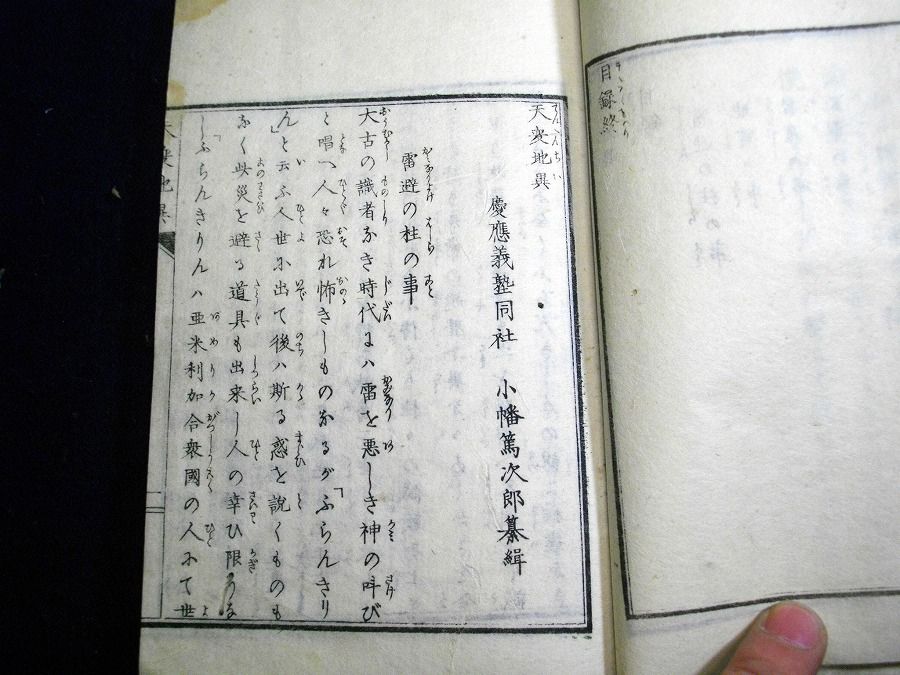 目録終
天変地異
慶應義塾同社 小幡篤次郎纂緝
雷避の柱の事
大古の識者なき時代にハ雷を悪しき神の叫び
と唱へ人々恐れ怖きしものなるが「ふらんきり
ん」と云ふ人世に出て後ハ斯る惑を説くものも
なく此災を避る道具も出来し人の幸ひ限りなし
「ふらんきりんハ亜米利加合衆國の人にて世